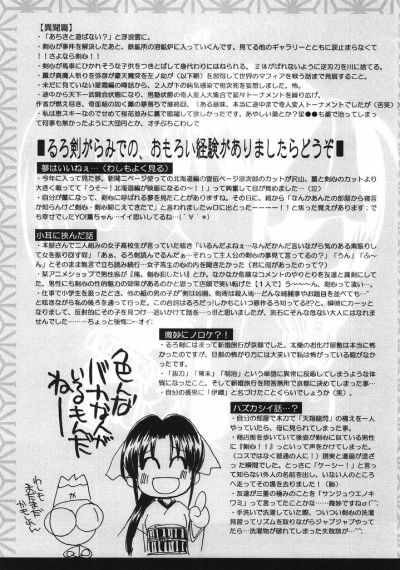 【異聞篇】
・「あらきと遊ばない？」と浮波雲に。
・剣心が事件を解決したあと、鉄鉱所の溶鉱炉に入っていくんです。見てる他のギャラリーとともに涙止まらなくて
！！さよなら剣心！！
・剣心が馬車にひかれそうな子供をつきとばして身代わりにはねられる。正体がばれないように逆刃刀を川に捨てる。
・薫が真魔人祭りを弥彦が豪天魔突を左ノ助が（以下略）を習得して世界のマフィアを戦う話まで発展すること。
・未だに見ていない星霜編の噂話から、２人が下の病気感染で相次死を妄想しました。怖。
・途中から天下一武闘会状態になり、男塾状態の奇人変人大集合で延々トーナメントを繰り広げ、
作者が燃え尽き、奇面組の如く薫の夢落ちで最終回。（ある意味、本当に途中まで奇人変人トーナメントでしたが（苦笑））
・私は恵スキーなのでせめて桜並木に薫に遭遇してほしかったです。あやしい薬とか？星●●も薬で治ってしまって
何事も無かったように大団円とか、オチぶちこわして
■るろ剣がらみでの、おもろい経験がありましたらどうぞ■
夢はいいねぇ…（わしもよく見る）
・今年に入って見た夢。新聞二ページ使っての北海道編の宣伝ページ宗次郎のカットが沢山、薫と剣心のカットより
大きく載ってて「うそ～！北海道編が映画になるの～！！」って興奮して目が覚めました…（泣）
・自分が薫になって、剣心に呼ばれる夢を見たことがありますね。その日に、緋から「なんかあんたの部屋から寝言
か知らんけど、剣心・剣心聞こえてきた」と言われましたｗ口に出ったとーーーー！！と焦った覚えがあります：で
も幸せでした
小耳に挟んだ話
・本屋さんで二人組みの女子高校生が言っていた呟き「いるんだよねぇ…なんだかんだ言いながら気のある素振りし
て女を振り回す奴」「あぁ、るろ剣読んでるんだぁ…それって主人公の剣心の事見て言ってるの？」「うん」「ふ～
ん」とそのまま無言で立ち読み続行…女子高生の心の内を聞きたかった（君に何があったのって？）
・某アニメショップで男性客が『俺、剣心犯したい』とか、なかなか危険なコメントのやりとりを友達と真剣にして
た。男性にも剣心の性的魅力の効果があるのかと思って店頭で笑い転げた【１人で】う～～～ん、剣心って凄い…。
・仕事で小学生を扱ったとき、他の組の男の子が「剣は凶器、剣術は殺人術…どんな綺麗事やお題目を並べても…」
と呟きながら私の後ろを通って行った。「この台詞はるろうだ！しかもこいつ斎作るろうが好きなのか？」と、瞬間にカーッと
なりまして、反射的にその子を見つけ…追いかけて話を…っ！！と思いましたが、流石にそんな危ない大人にはなれま
せんでした……ちょっと後悔で…オイ：
微妙にノロケ？！
・るろ剣にはまって新婚旅行が京都でした。太秦のお化け屋敷は本当に怖
かったのですが、旦那の怖がり方には大笑いで私は怖がっている暇がなか
ったです。
・「抜刀」「幕末」「明治」という単語に異常に反応してしまうような体
質になったこと。そして新婚旅行を問答無用で京都に決めてしまった事…
・自分の長男に「伊織」と名づけたことくらいでしょうか（笑）。
ハズカシイ話…？
・自分の部屋で木刀で「天翔龍閃」の構えを一人
やっていたら、母に見られてしまった事。
・商店街を歩いていて後姿が剣心に似ている男性
に『剣心！！』っといって声をかけてしまった。
（コスではなくて普通の人に！）現実と漫画が混ざ
った瞬間でした。とっさに「ケーシー！」と言っ
て知らない外人の名前を出し、いない人のところ
へ走ってその場を去りました！（恥）
・友達が三重の極みのことを「サンジュウエノキ
ワミ」って言ってたことかな……微妙ですねσ(^^;
・手洗いで洗濯していた際、ついつい剣心の洗濯
見習ってリズムを取りながらジャブジャブやってた
ら…洗濯物が破れてしまった失敗談が…^^;
色んな
バカなんが
いるもんだ
ねー